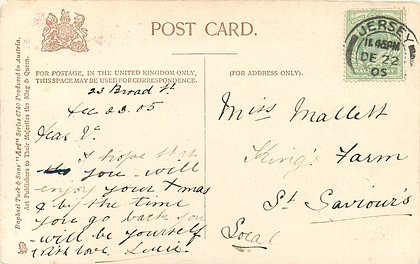 POST CARD.
FOR POSTAGE, IN THE UNITED KINGDOM ONLY,
THIS SPACE MAY BE USED FOR CORRESPONDENCE.
(FOR ADDRESS ONLY.)
Raphael Tuck & Sons' "Art" Series 6740 Produced in Austria.
Art Publishers to Their Majesties the King & Queen.
JERSEY
11.45PM
DE 22
05
HALFPENNY
23 Broad St
Dec 22.05
Dear
I hope that
you will
enjoy your Xmas
& by the time
you go back you
will be yourself
With love Louie.
Miss Mallett
King's Farm
St Saviour's
Local